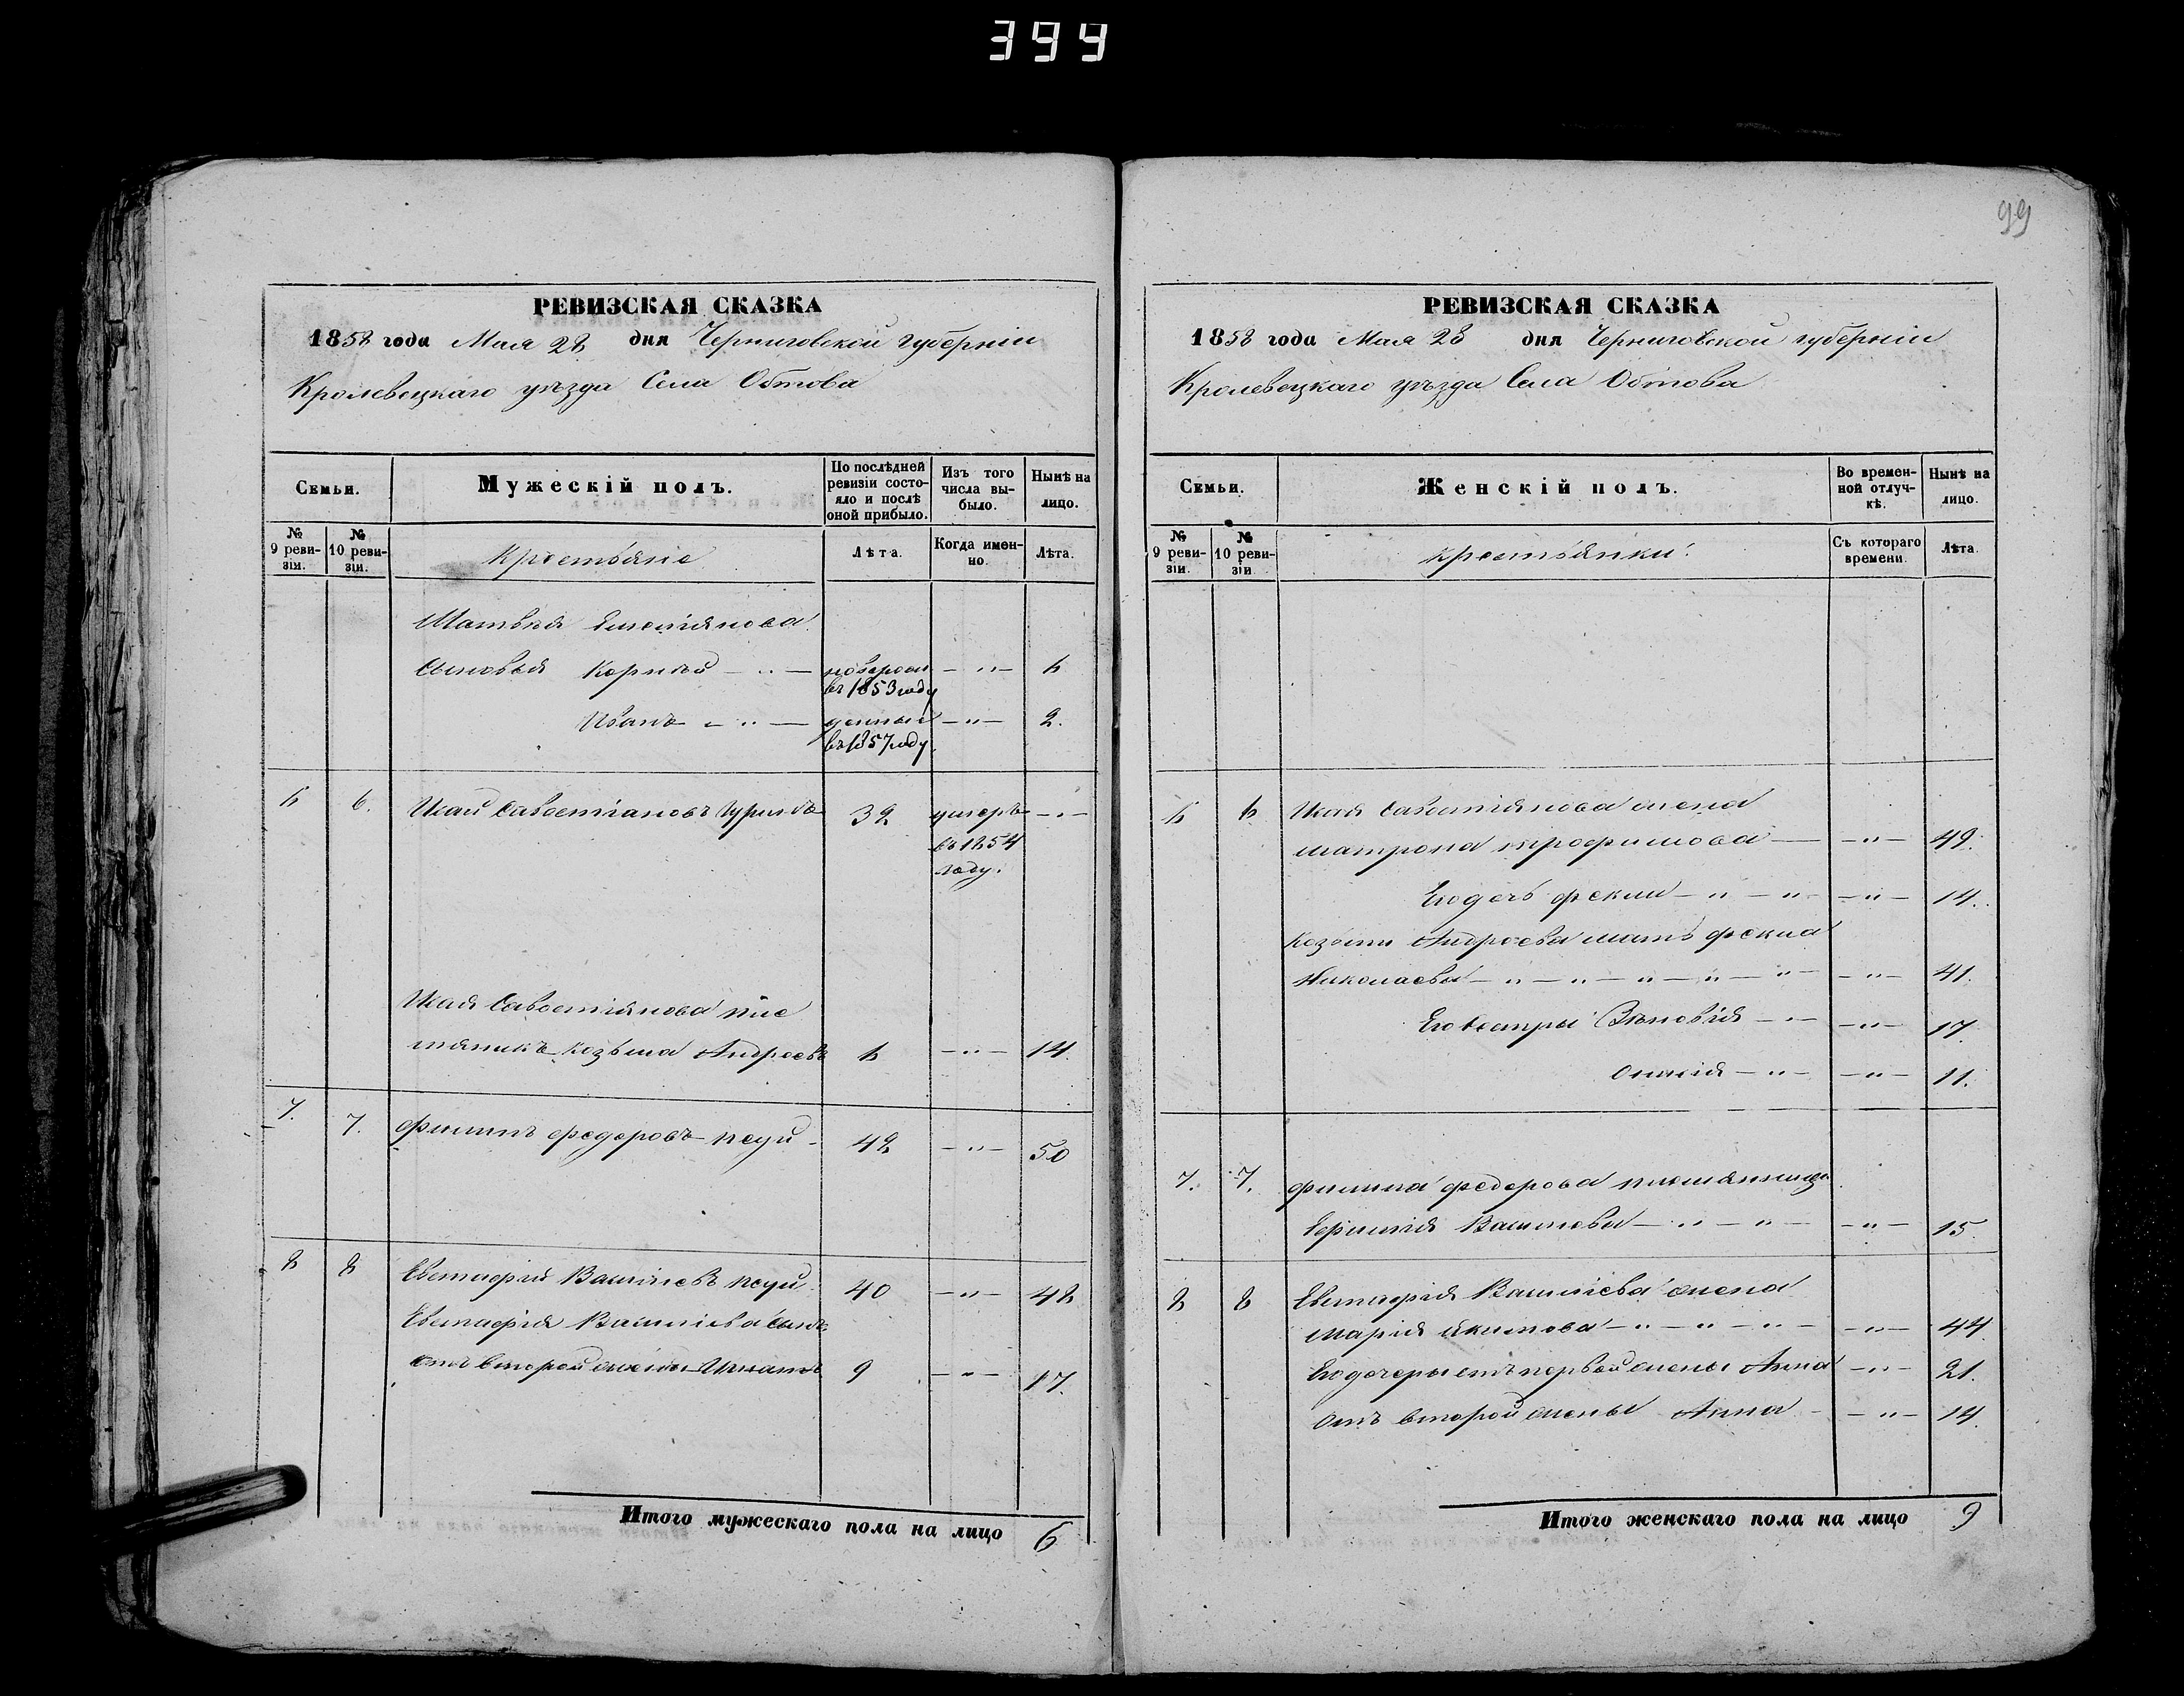 399
РЕВИЗСКАЯ СКАЗКА
1858 года Мая 28 дня Черниговской губерніи
Кролевецкаго уѣзда Села Обтова
Семьи.
Мужескій полъ.
По послѣдней ревизіи состояло и послѣ оной прибыло.
Изъ того числа выбыло.
Нынѣ на лицо.
№ 9 ревизіи.
№ 10 ревизіи.
Крестьяне
Лѣта.
Когда именно.
Лѣта.
Матвѣя
Сыновья Корнѣй - " - въ 1853 году - " - 6
Иванъ - " - въ 1857 году - " - 2.
6 6. Савостіановъ 32 умеръ - " -
въ 1854
году.
Савостіянова пле
мяникъ Козьма Андреевъ 6 - " - 14.
7. 7. Филипъ Федоровъ 42 - " - 50
8 8 Евстафій Васильевъ 40 - " - 48
Евстафія Васильева Сынъ
отъ второй жены Игнатъ 9 - " - 17.
Итого мужескаго пола на лицо 6
99
РЕВИЗСКАЯ СКАЗКА
1858 года Мая 28 дня Черниговской губерніи
Кролевецкаго уѣзда Села Обтова
Семьи.
Женскій полъ.
Во временной отлучкѣ.
Нынѣ на лицо.
№ 9 ревизіи.
№ 10 ревизіи
Крестьянки.
Съ котораго времени.
Лѣта.
6 6 Савостіянова жена
Матрона Трофимова - " - 49.
Его дочь Фекла - " - " - - " - 14.
Козьмы Андреева мать Фекла
Николаева - " - " - " - " - " - - " - 41.
Его сестры Зѣновія - " - - " - 17.
- " - - " - 11.
7. 7. Филипа Федорова племянница
Васильева - " - " - - " - 15.
8 8 Евстафія Васильева жена
Марія Якимова - " - " - " - - " - 44.
Его дочери отъ первой жены Анна - " - 21.
Отъ второй жены Анна - - " - 14.
Итого женскаго пола на лицо 9